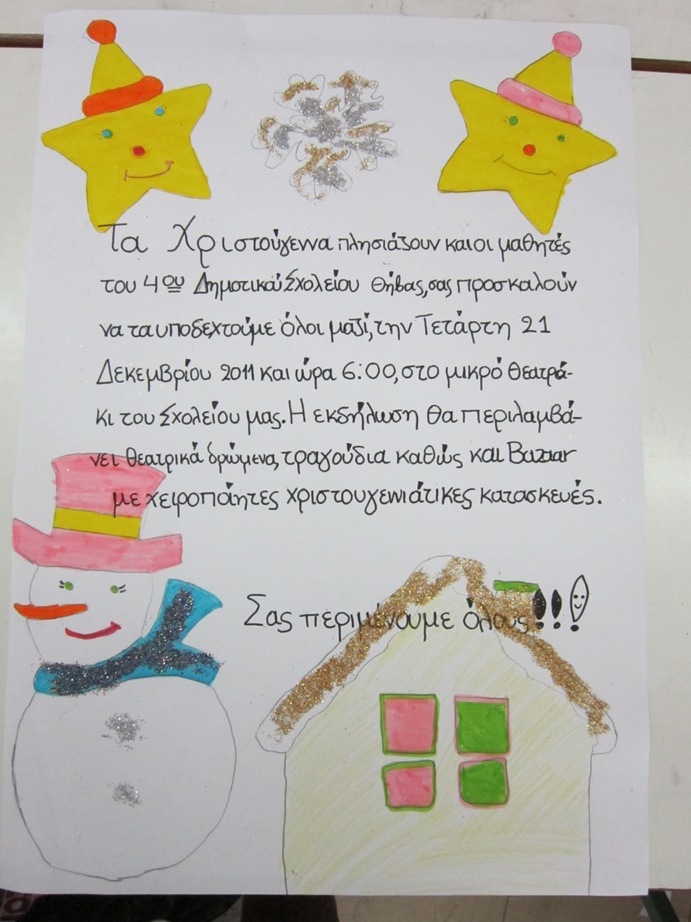 Τα Χριστούγεννα πλησιάζουν και οι μαθητές
του 4ου Δημοτικού Σχολείου Θήβας, σας προσκαλούν
να τα υποδεχτούμε όλοι μαζί, την Τετάρτη 21
Δεκεμβρίου 2011 και ώρα 6:00, στο μικρό θεατρά-
κι του Σχολείου μας. Η εκδήλωση θα περιλαμβά-
νει θεατρικά δρώμενα, τραγούδια καθώς και Bazaar
με χειροποίητες χριστουγεννιάτικες κατασκευές.
Σας περιμένουμε όλους!!!